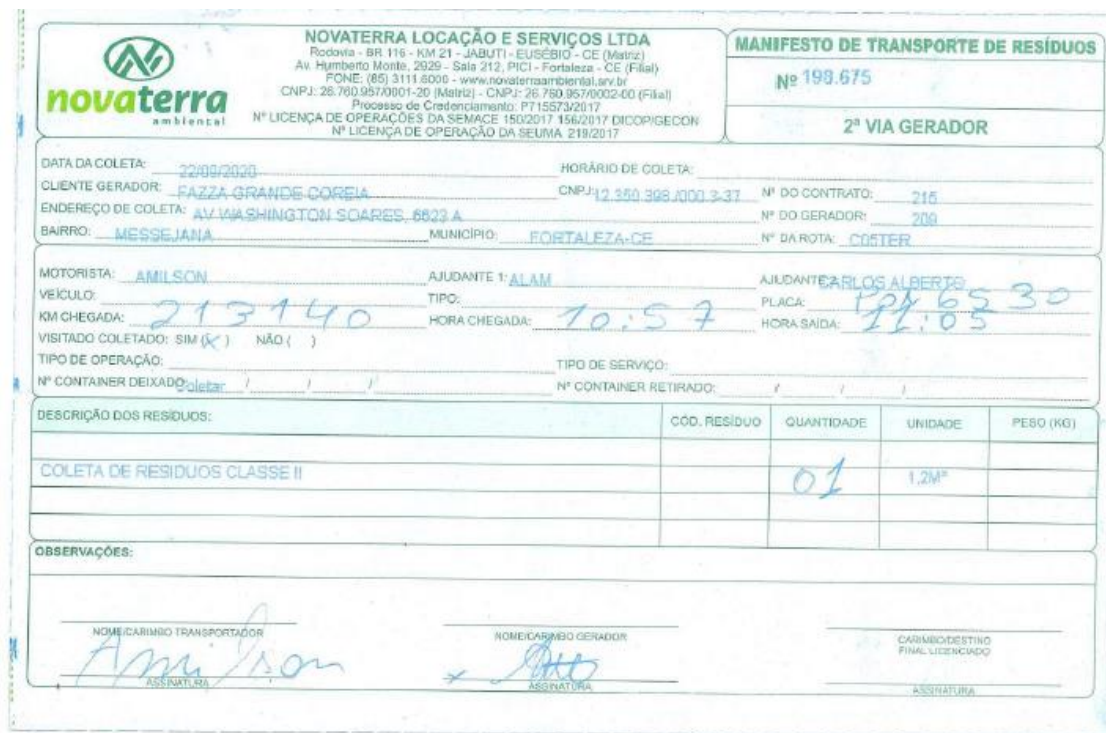 novaterra
ambiental
NOVATERRA LOCAÇÃO E SERVIÇOS LTDA
Rodovia - BR 116 - KM 21 - JABUTI - EUSÉBIO - CE (Matriz)
Av. Humberto Monte, 2929 - Sala 212, PICI - Fortaleza - CE (Filial)
FONE: (85) 3111.6000 - www.novaterraambiental.srv.br
CNPJ: 26.760.957/0001-20 (Matriz) - CNPJ: 26.760.957/0002-00 (Filial)
Processo de Credenciamento: P715573/2017
Nº LICENÇA DE OPERAÇÕES DA SEMACE 150/2017 156/2017 DICOP/GECON
Nº LICENÇA DE OPERAÇÃO DA SEUMA 219/2017
MANIFESTO DE TRANSPORTE DE RESÍDUOS
Nº 198.675
2ª VIA GERADOR
DATA DA COLETA: HORÁRIO DE COLETA:
CLIENTE GERADOR: FAZZA GRANDE COREIA CNPJ: 12.350.398/000.3-37 Nº DO CONTRATO: 215
ENDEREÇO DE COLETA: AV WASHINGTON SOARES, 6623 A Nº DO GERADOR: 209
BAIRRO: MESSEJANA MUNICÍPIO: FORTALEZA-CE Nº DA ROTA: C05TER
MOTORISTA: AMILSON AJUDANTE 1: ALAM AJUDANTE CARLOS ALBERTO
VEÍCULO: TIPO: PLACA: 6530
KM CHEGADA: 213140 HORA CHEGADA: 10:57 HORA SAÍDA: 11:05
VISITADO COLETADO: SIM (X) NÃO ( )
TIPO DE OPERAÇÃO: TIPO DE SERVIÇO:
Nº CONTAINER DEIXADO: Coletar / / / Nº CONTAINER RETIRADO: / / /
DESCRIÇÃO DOS RESÍDUOS: CÓD. RESÍDUO QUANTIDADE UNIDADE PESO (KG)
COLETA DE RESIDUOS CLASSE II 01 1,2M³
OBSERVAÇÕES:
NOME/CARIMBO TRANSPORTADOR NOME/CARIMBO GERADOR CARIMBO/DESTINO
FINAL LICENCIADO
Amilson
ASSINATURA ASSINATURA ASSINATURA